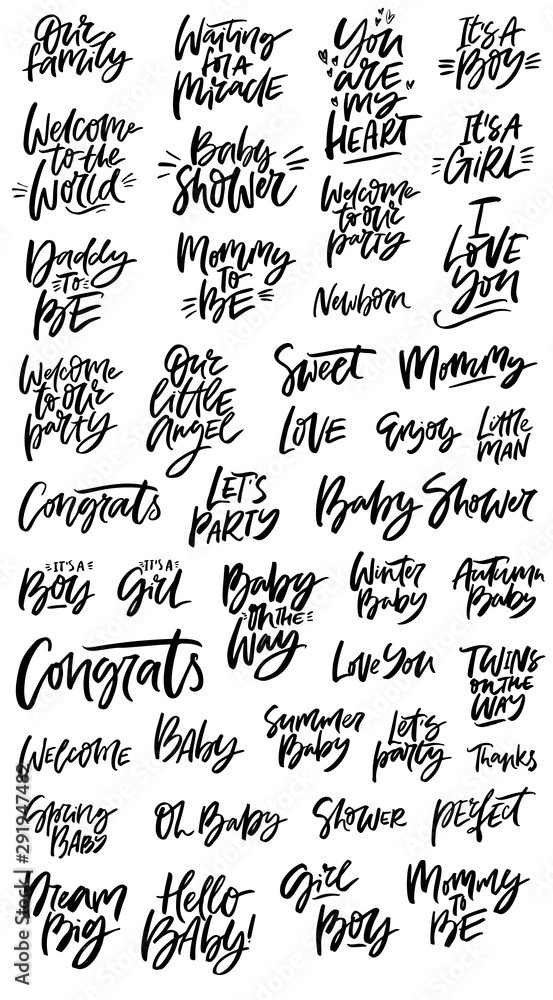 Our
family
Waiting
for a
miracle
You
are
my
HEART
It's a
Boy
Welcome
to the
World
Baby
Shower
It's a
Girl
Welcome
to our
party
I
Love
you
Daddy
to
BE
Mommy
to
BE
Newborn
Welcome
to our
party
Our
little
angel
Sweet
Mommy
LOVE
Enjoy
Little
MAN
Congrats
Let's
PARTY
Baby Shower
IT'S A
Boy
IT'S A
Girl
Baby
on the
Way
Winter
Baby
Autumn
Baby
Congrats
Love You
TWINS
on the
Way
Welcome
BABY
Summer
Baby
Let's
party
Thanks
Spring
BABY
Oh Baby
Shower
perfect
Dream
Big
Hello
BABY!
Girl
Boy
Mommy
to
BE
Adobe Stock | #291947489